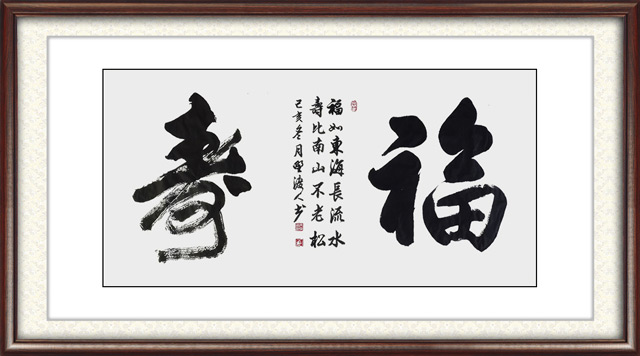 福
福如東海長流水
壽比南山不老松
己亥冬月渡人书
壽